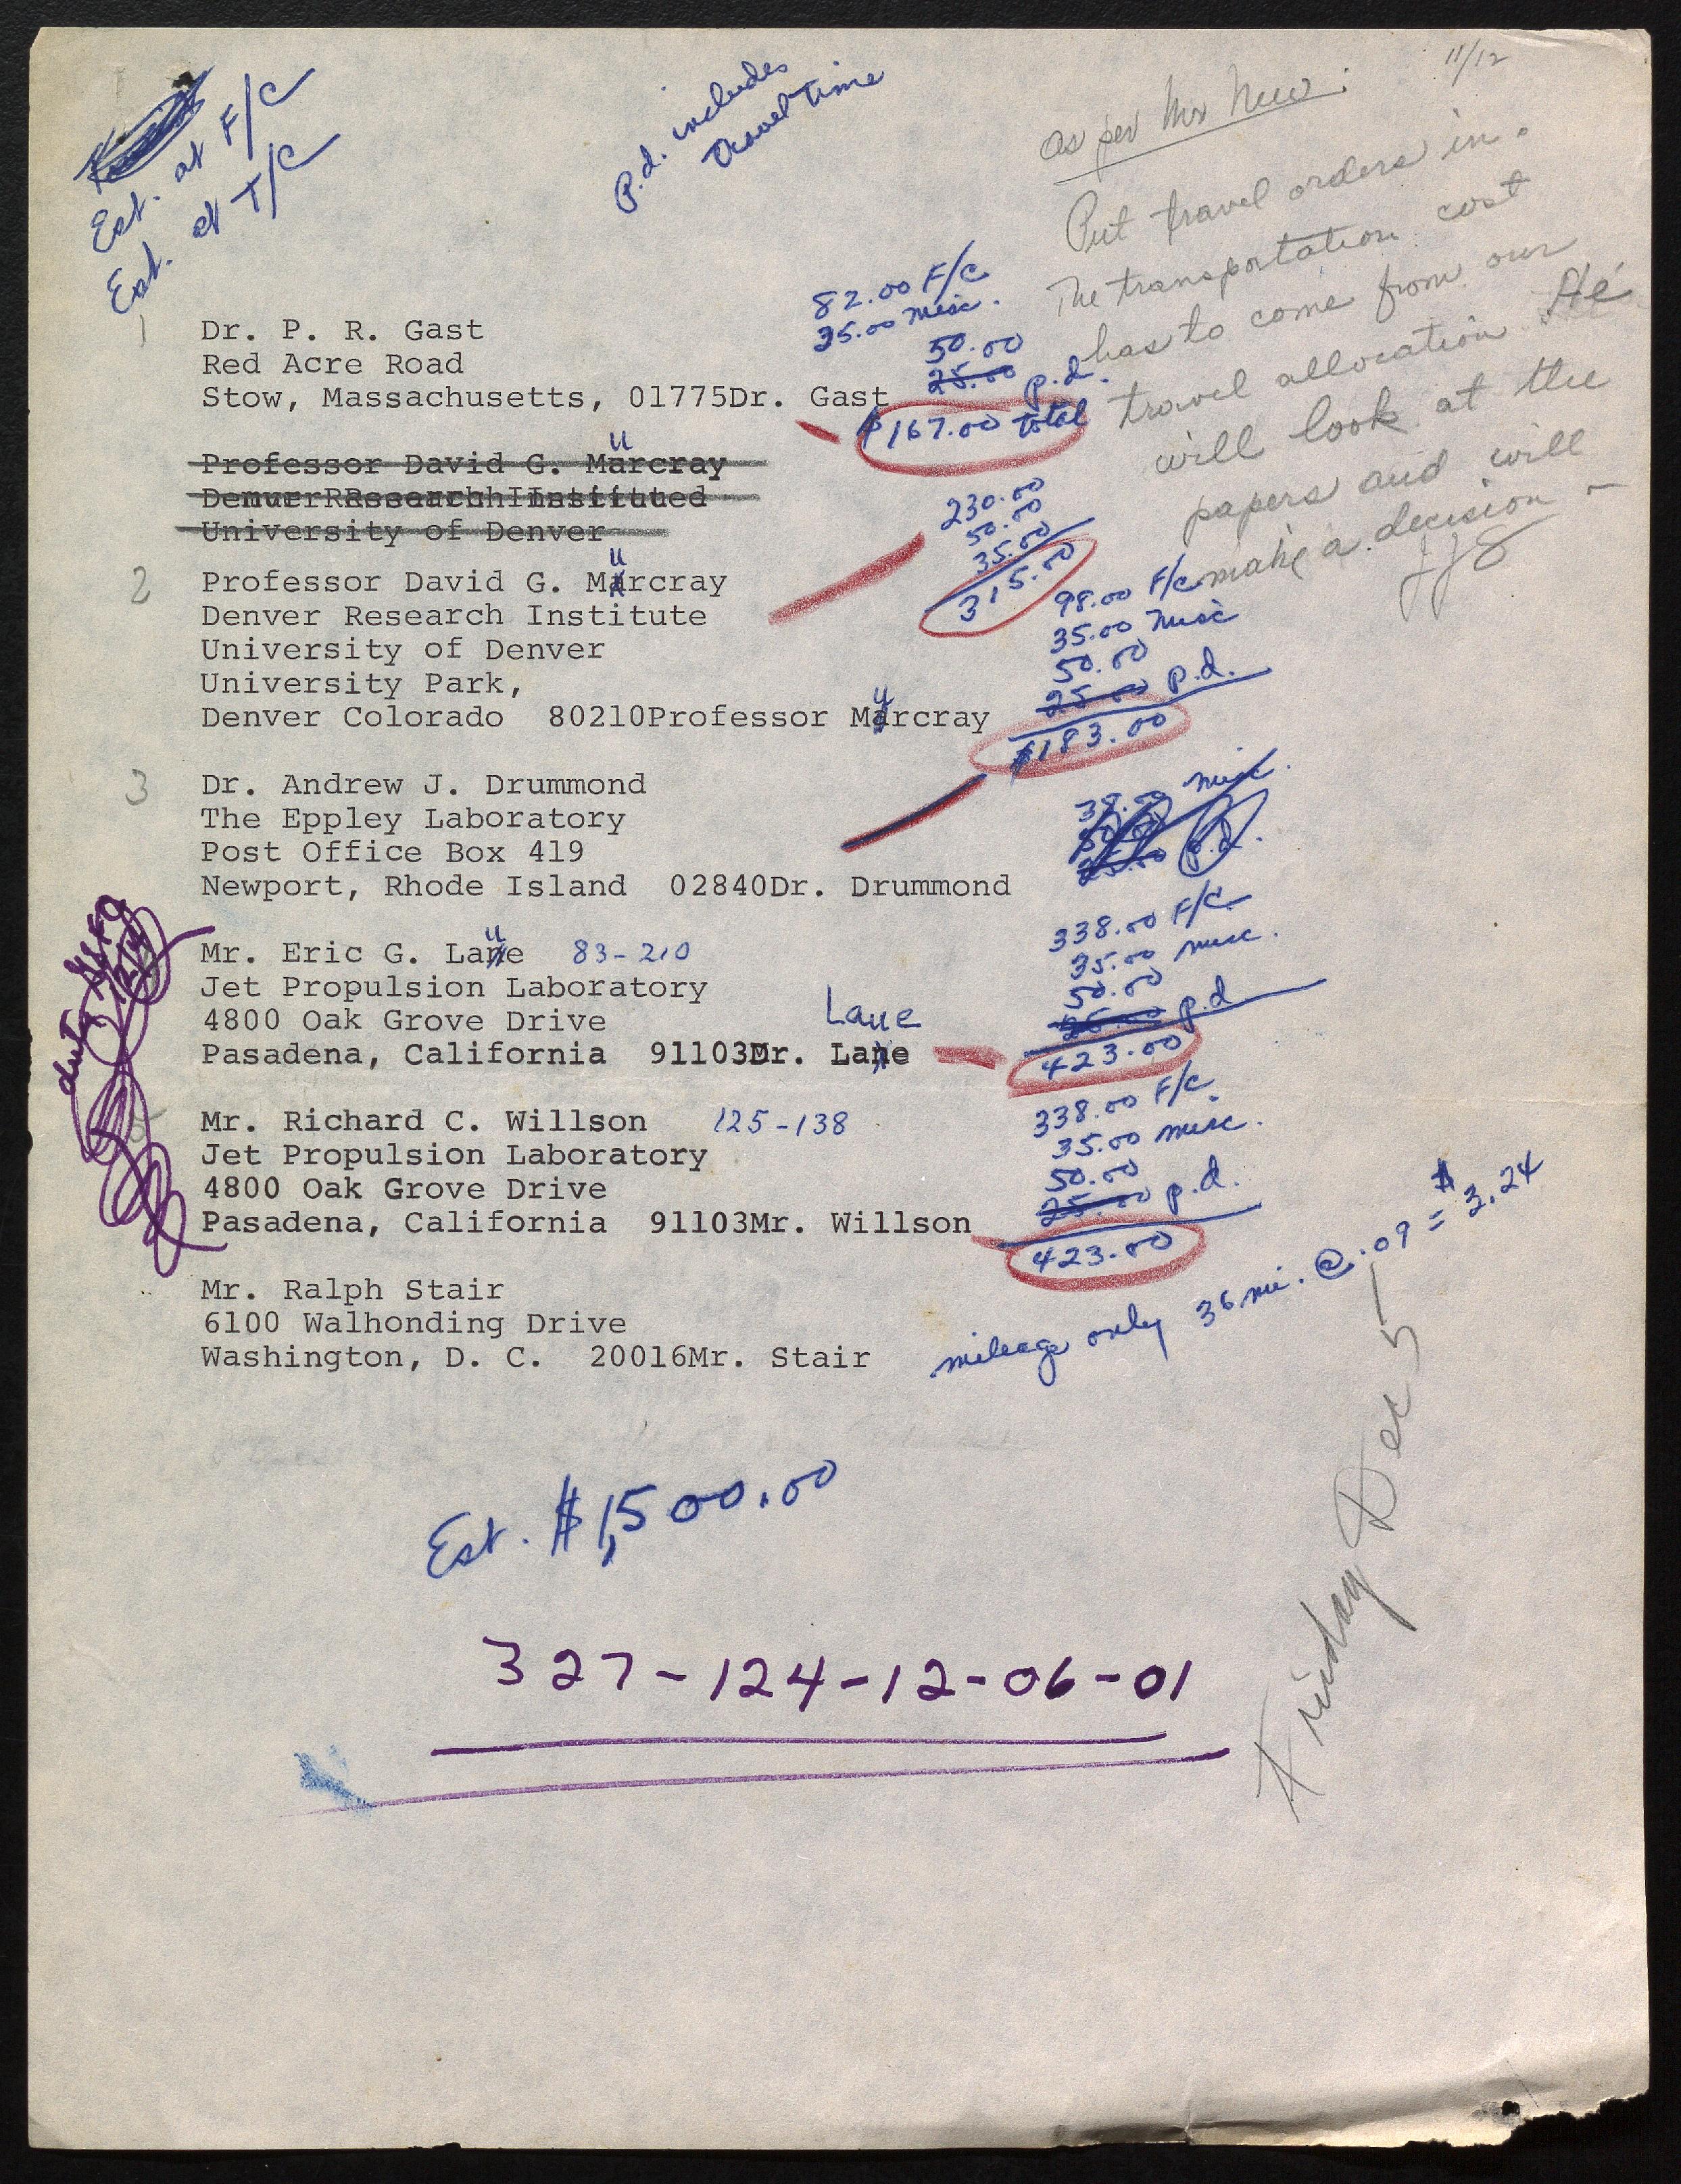 Est. at F/C
Est. at T/C
P.d. includes
travel time
11/12
as per Mr
Put travel orders in.
The transportation cost
has to come from our
travel allocation He
will look at the
papers and will
make a decision -
1
Dr. P. R. Gast
Red Acre Road
Stow, Massachusetts, 01775Dr. Gast
82.00 F/C
35.00 misc.
50.00
25.00 p.d.
$167.00 total
u
Professor David G. Marcray
University of Denver
230.00
50.00
35.00
315.00
u
2 Professor David G. Marcray
Denver Research Institute
University of Denver
University Park,
Denver Colorado 80210Professor Marcray
u
98.00 F/C
35.00 misc
50.00
25.00 p.d.
$183.00
3 Dr. Andrew J. Drummond
The Eppley Laboratory
Post Office Box 419
Newport, Rhode Island 02840Dr. Drummond
misc.
25.00 p.d.
u
Mr. Eric G. Lane 83-210
Jet Propulsion Laboratory
4800 Oak Grove Drive
Laue
Pasadena, California 91103Mr. Lane
338.00 F/C
35.00 misc.
50.00
25.00 p.d
423.00
Mr. Richard C. Willson 125-138
Jet Propulsion Laboratory
4800 Oak Grove Drive
Pasadena, California 91103Mr. Willson
338.00 F/C.
35.00 misc.
50.00
25.00 p.d.
423.00
Mr. Ralph Stair
6100 Walhonding Drive
Washington, D. C. 20016Mr. Stair
mileage only 36 mi. @ .09 = $3.24
Friday Dec 5
Est. $1,500.00
327-124-12-06-01